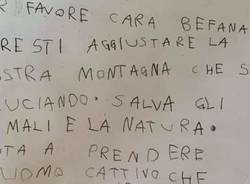 R FAVORE CARA BEFANA
RESTI AGGIUSTARE LA
STRA MONTAGNA CHE S
RUCIANDO. SALVA GLI
MALI E LA NATURA.
TA A PRENDERE
UOMO CATTIVO CHE